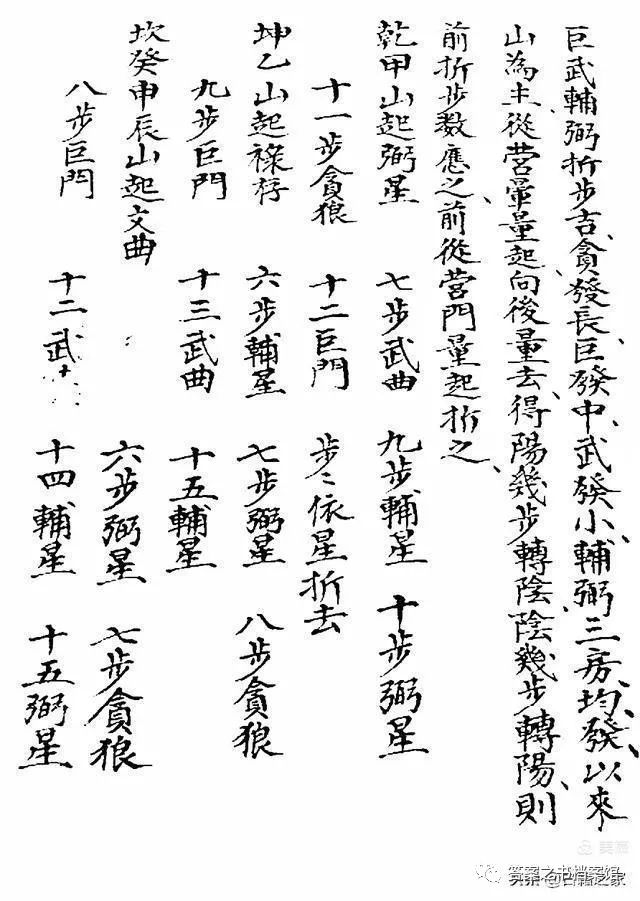 巨武輔弼折步吉、貪發長、巨發中、武發小、輔弼三房、均、發、以來
山為主從營暈量起向後量去、得陽幾步轉陰陰幾步轉陽、則
前折步数應之、前從營門量起折之、
乾甲山起弼星 七步武曲 九步輔星 十步弼星
十一步貪狼 十二巨門 步々依星折去
坤乙山起祿存 六步輔星 七步弼星 八步貪狼
九步巨門 十三武曲 十五輔星
坎癸申辰山起文曲 六步弼星 七步貪狼
八步巨門 十二武 十四輔星 十五弼星
頭条@古籍之家